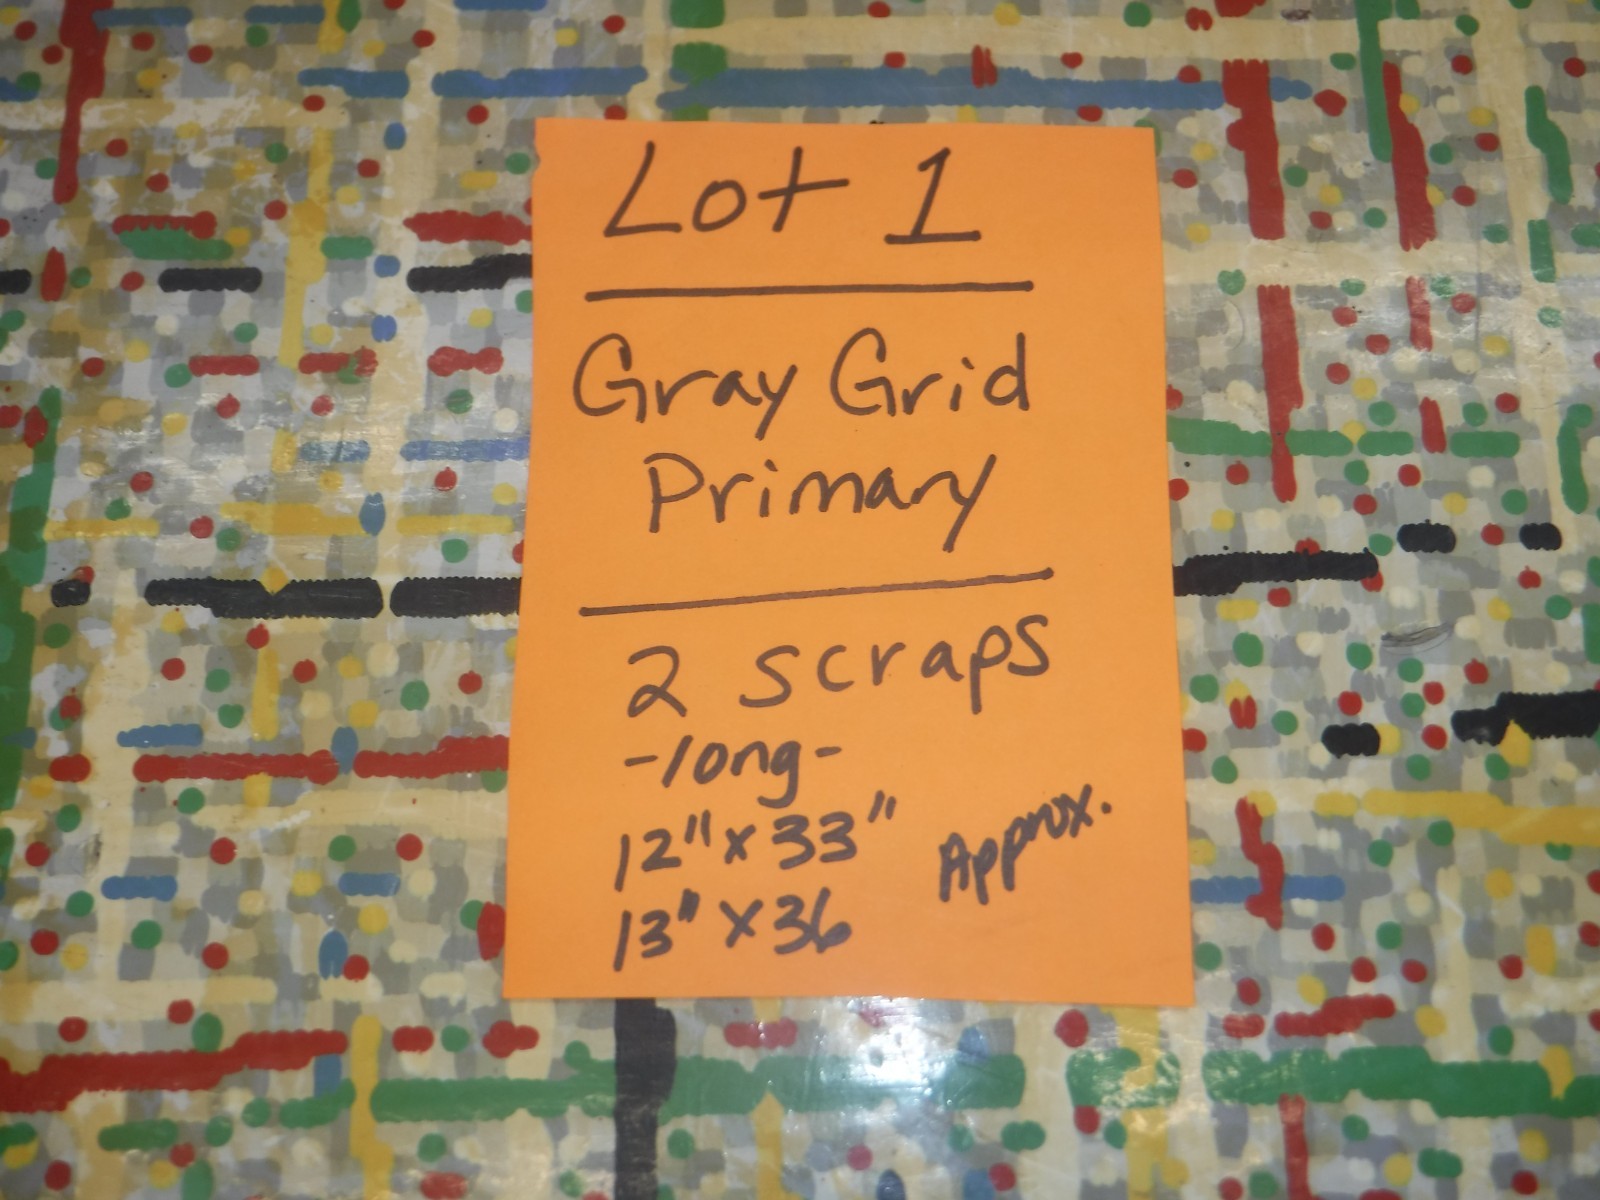 Lot 1
Gray Grid
Primary
2 scraps
-long-
12" x 33"
Approx.
13" x 36